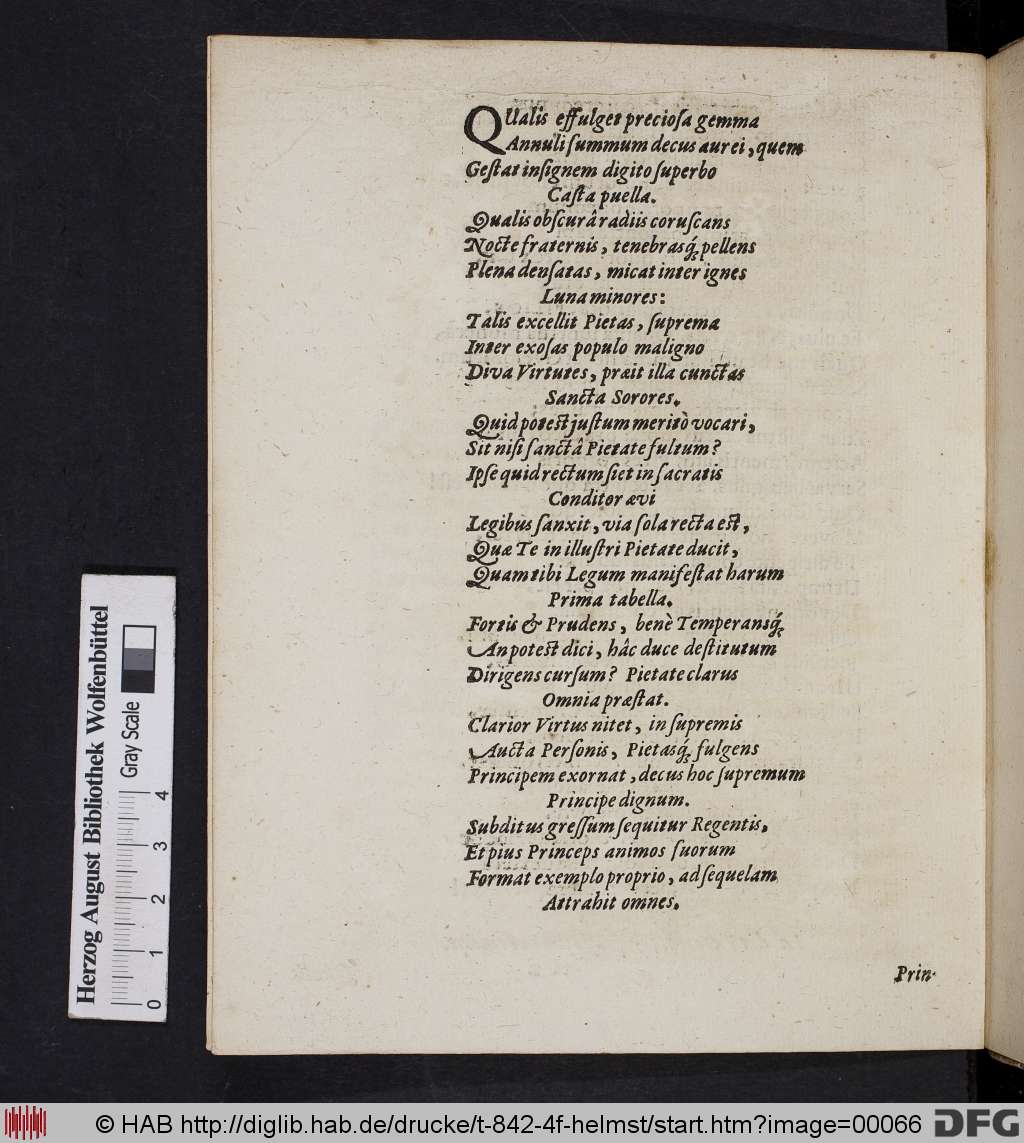 QUalis effulget preciosa gemma
Annuli summum decus aurei, quem
Gestat insignem digito superbo
Casta puella.
Qualis obscurâ radiis coruscans
Nocte fraternis, tenebrasq́; pellens
Plena densatas, micat inter ignes
Luna minores:
Talis excellit Pietas, suprema
Inter exosas populo maligno
Diva Virtutes, præit illa cunctas
Sancta Sorores.
Quid potest justum meritò vocari,
Sit nisi sanctâ Pietate fultum?
Ipse quid rectum siet in sacratis
Conditor ævi
Legibus sanxit, via sola recta est,
Quæ Te in illustri Pietate ducit,
Quam tibi Legum manifestat harum
Prima tabella.
Fortis & Prudens, benè Temperansq́;
An potest dici, hâc duce destitutum
Dirigens cursum? Pietate clarus
Omnia præstat.
Clarior Virtus nitet, in supremis
Aucta Personis, Pietasq́; fulgens
Principem exornat, decus hoc supremum
Principe dignum.
Subditus gressum sequitur Regentis,
Et pius Princeps animos suorum
Format exemplo proprio, ad sequelam
Attrahit omnes.
Prin-
Herzog August Bibliothek Wolfenbüttel
Gray Scale
0 1 2 3 4
© HAB http://diglib.hab.de/drucke/t-842-4f-helmst/start.htm?image=00066
DFG